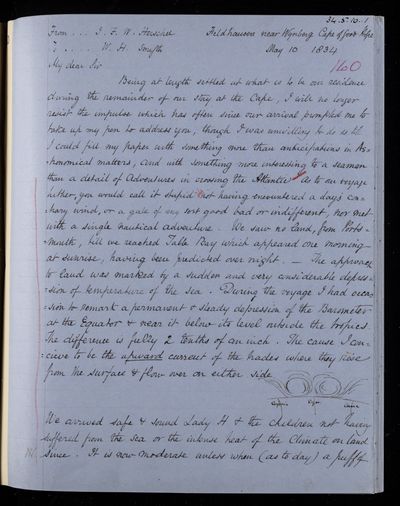 34.5.10.1
From ... J. F. W. Herschel Feldhausen near Wynberg Cape of Good Hope
T ..... W. H. Smyth May 10 1834
My dear Sir 160
Being at length settled at what is to be our residence
during the remainder of our stay at the Cape, I will no longer
resist the impulse which has often since our arrival prompted me to
take up my pen to address you, though I was unwilling to do so till
I could fill my paper with something more than anticipations in As-
tronomical matters, and with something more interesting to a seaman
than a detail of Adventures in crossing the Atlantic. As to our voyage
hither, you would call it stupid not having encountered a days con-
trary wind, or a gale of any sort good bad or indifferent, nor met
with a single nautical adventure. We saw no land, from Ports-
mouth, till we reached Table Bay which appeared one morning
at sunrise, having been predicted over night. — The approach
to land was marked by a sudden and very considerable depres-
-sion of temperature of the sea. During the voyage I had occa-
-sion to remark a permanent & steady depression of the Barometer
at the Equator & near it below its level outside the tropics.
The difference is fully 2 tenths of an inch. The cause I con-
-ceive to be the upward current of the trades where they rise
from the surface & flow over on either side
We arrived safe & sound Lady H & the children not having
suffered from the sea or the intense heat of the Climate on land
since. It is now moderate unless when (as to day) a puff of